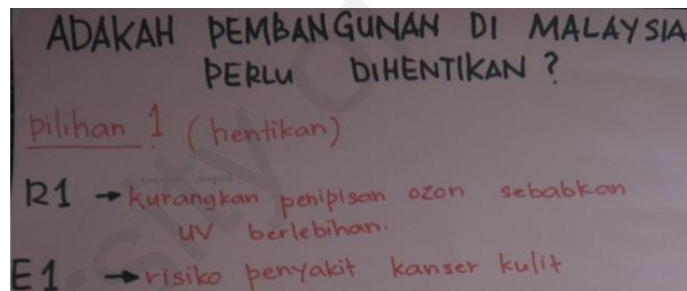 ADAKAH PEMBANGUNAN DI MALAYSIA
PERLU DIHENTIKAN ?
pilihan 1 (hentikan)
R1 → kurangkan penipisan ozon sebabkan
UV berlebihan.
E1 → risiko penyakit kanser kulit